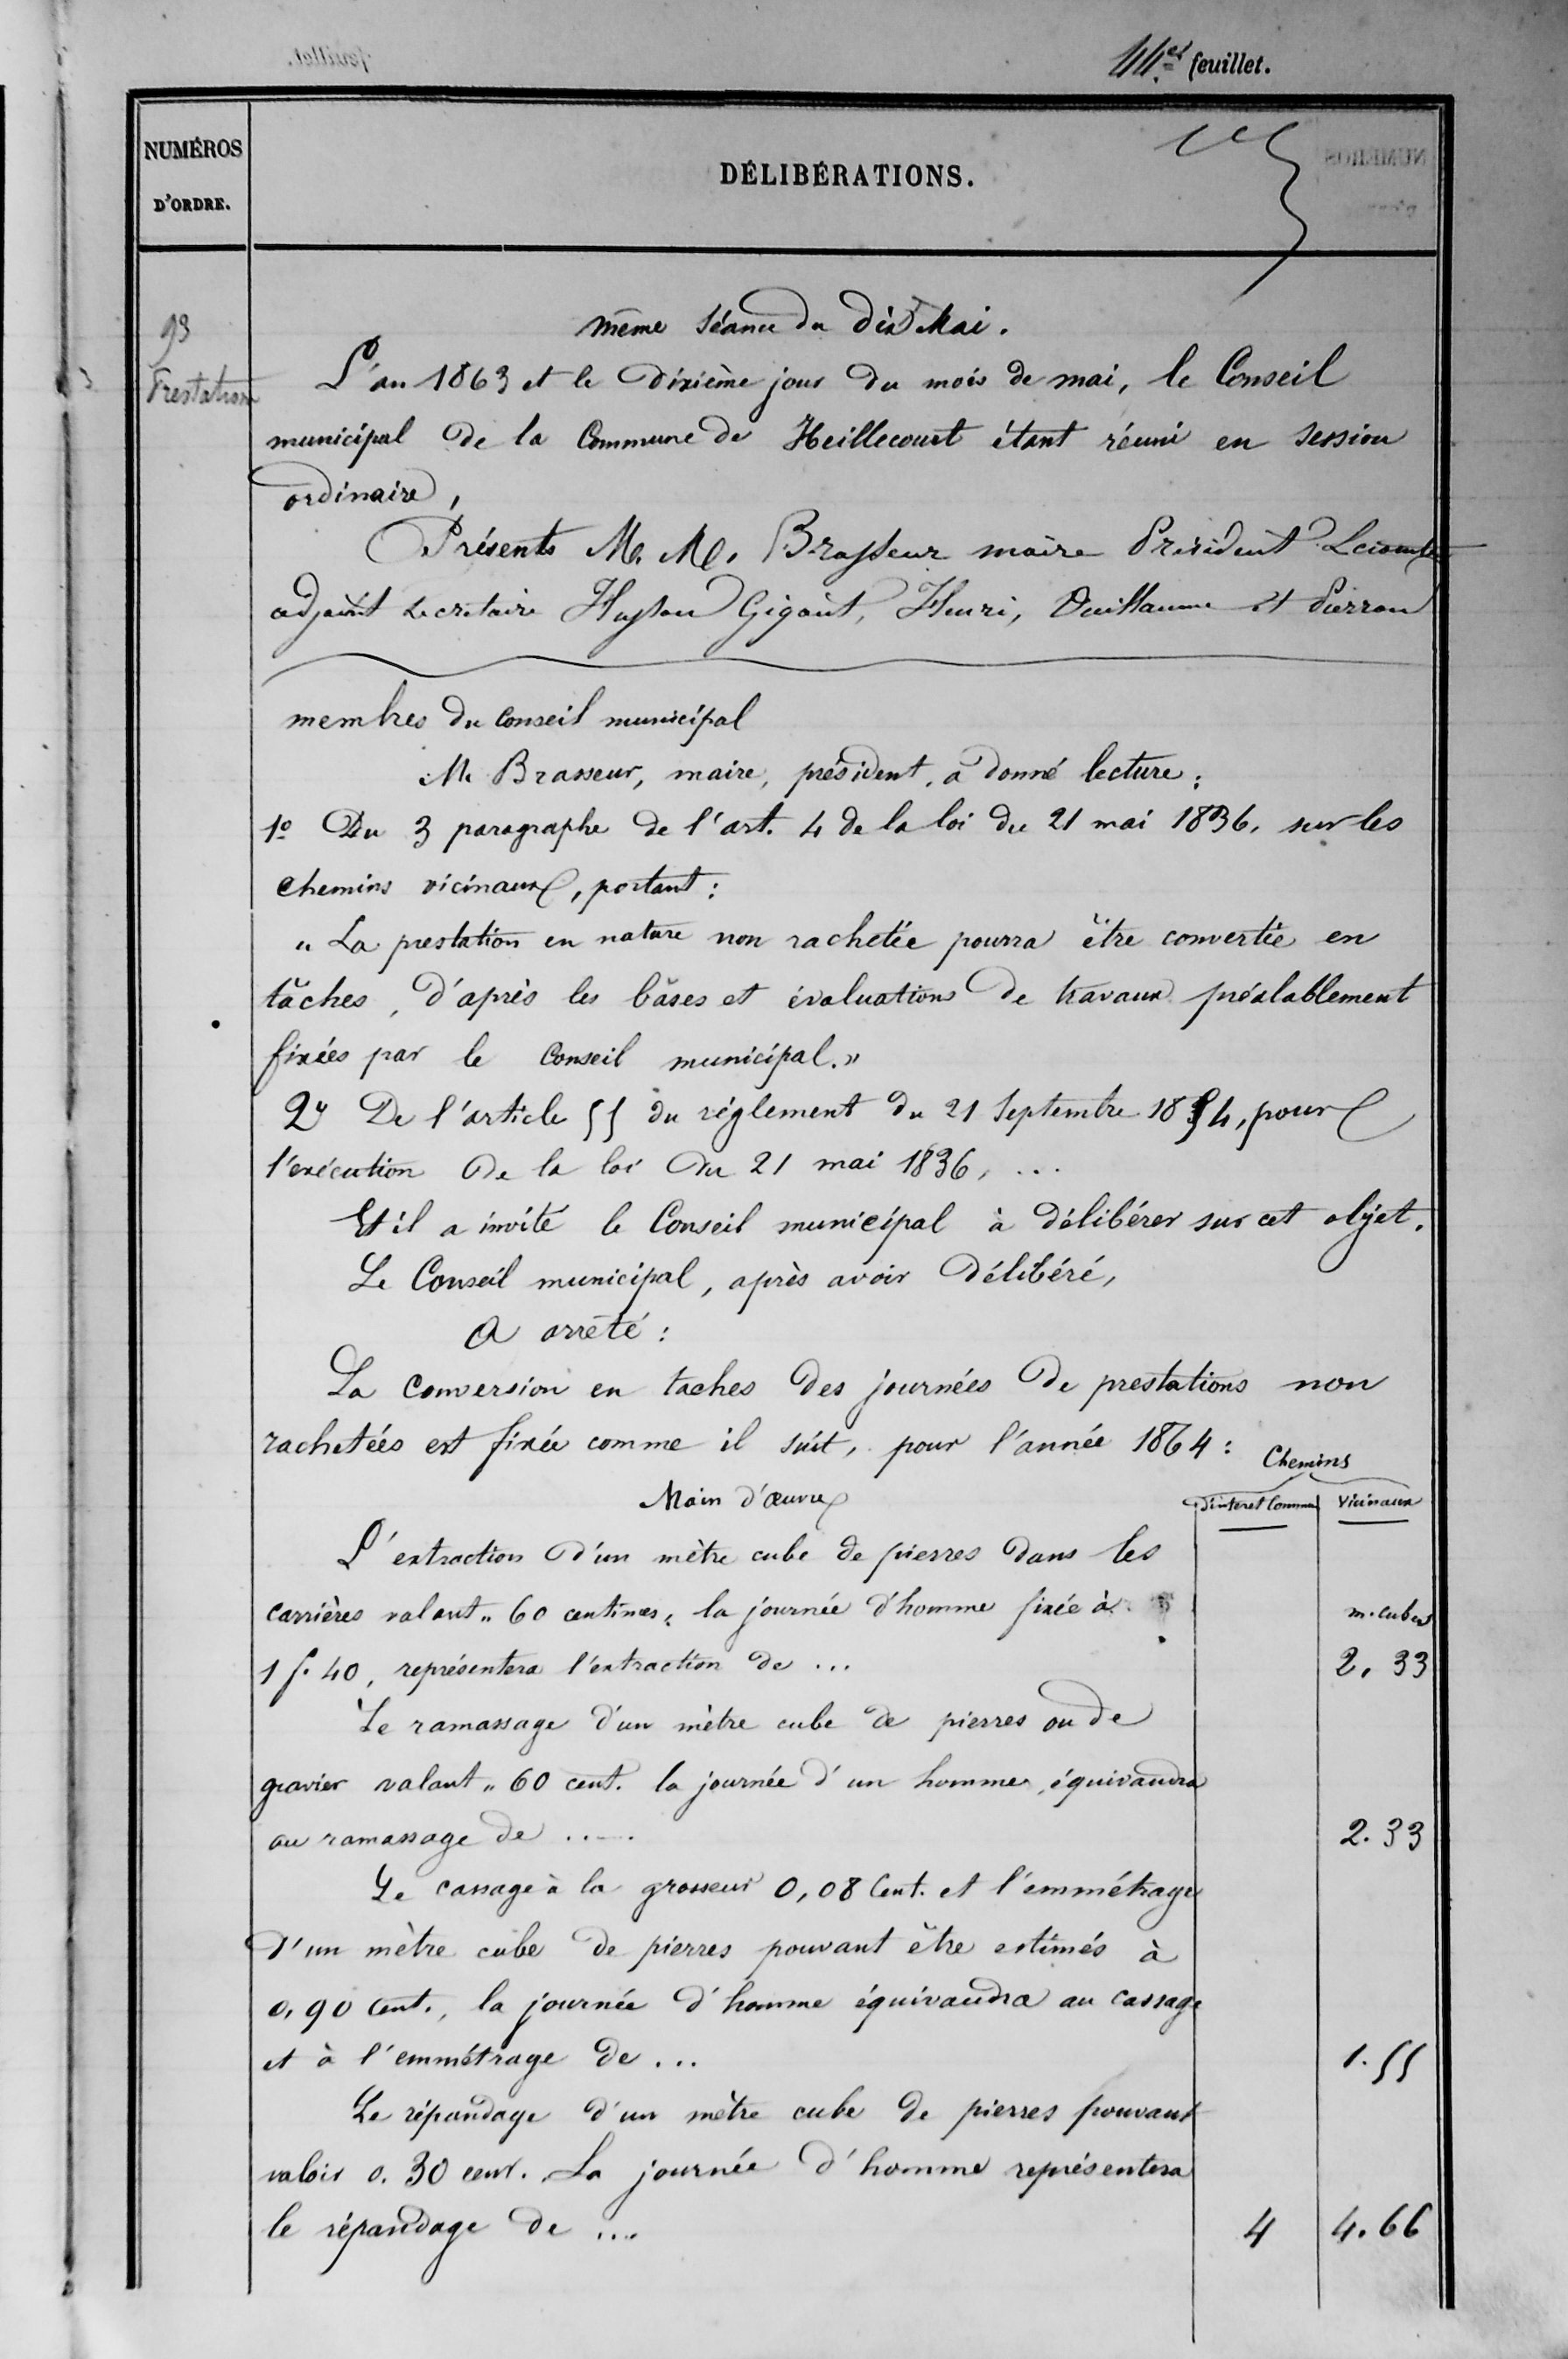 44.e feuillet.
NUMÉROS
D'ORDRE.
DÉLIBÉRATIONS.
93
Prestation
même séance du dix Mai.
L'an 1863 et le dixième jour du mois de mai, le Conseil
municipal de la Commune de Heillecourt étant réuni en session
ordinaire,
Présents M. M. Brasseur maire Président Lecomte
adjoint secretaire Husson Gigout, Henri, Vuillaume et Pierron
membres du Conseil municipal
M. Brasseur, maire, président, a donné lecture:
1º Du 3 paragraphe de l'art. 4 de la loi du 21 mai 1836, sur les
chemins vicinaux, portant:
"La prestation en nature non rachetée pourra être convertie en
tâches, d'après les bâses et évaluations de travaux préalablement
fixées par le Conseil municipal."
2º De l'article 55 du réglement du 21 Septembre 1854, pour
l'exécution de la loi du 21 mai 1836, ...
Et il a invité le Conseil municipal à délibérer sur cet objet.
Le Conseil municipal, après avoir délibéré,
A arrêté:
La conversion en taches des journées de prestations non
rachetées est fixée comme il suit, pour l'année 1864:
Chemins
Main d'œuvre
d'interet Commun
Vicinaux
L'extraction d'un mètre cube de pierres dans les
carrières valant " 60 centimes, la journée d'homme fixée à
m. cubes
1 f. 40, représentera l'extraction de ...
2. 33
Le ramassage d'un mètre cube de pierres ou de
gravier valant " 60 cent. la journée d'un homme, équivaudra
au ramassage de .....
2. 33
Le cassage à la grosseur 0,08 Cent. et l'emmétrage
d'un mètre cube de pierres pouvant être estimés à
0,90 cent., la journée d'homme équivaudra au cassage
et à l'emmétrage de ...
1. 55
Le répandage d'un mètre cube de pierres pouvant
valoir 0. 30 cent. La journée d'homme représentera
le répandage de ....
4
4. 66